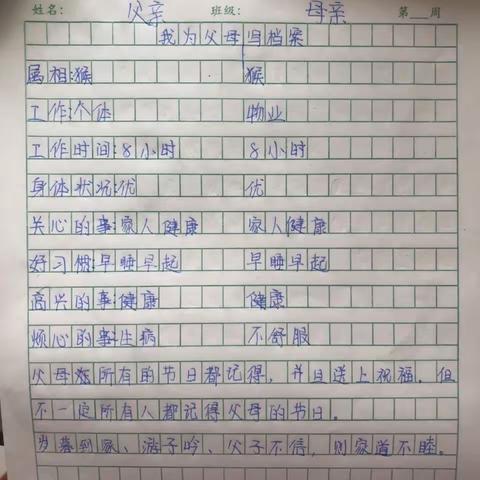 姓名： 父亲 班级： 母亲 第 周
我为父母建档案
属相：猴 猴
工作：个体 物业
工作时间：8小时 8小时
身体状况：优 优
关心的事：家人健康 家人健康
好习惯：早睡早起 早睡早起
高兴的事：健康 健康
烦心的事：生病 不舒服
父母对所有的节日都记得，并且送上祝福，但
不一定所有人都记得父母的节日。
岁暮到家、游子吟、父子不信，则家道不睦。